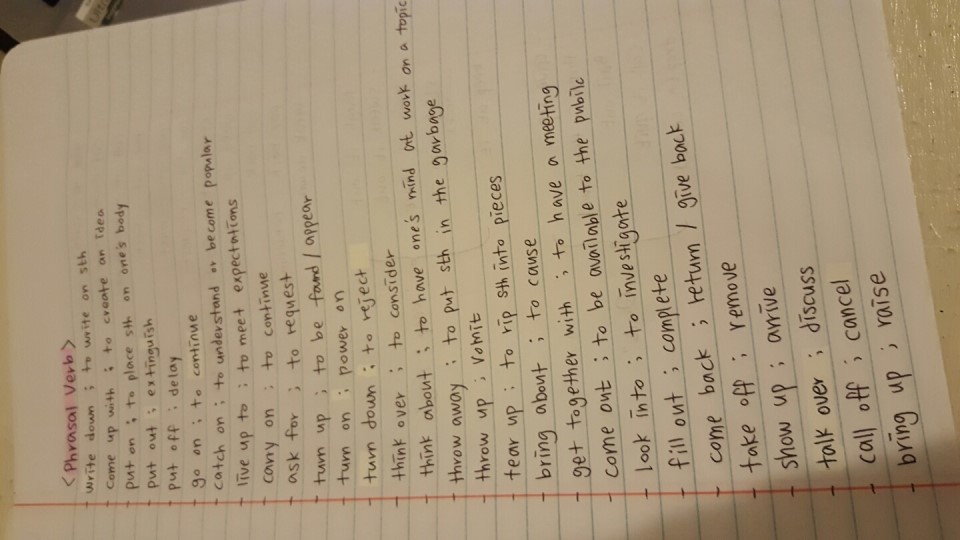 <Phrasal Verb>
- write down ; to write on sth
- come up with ; to create an idea
- put on ; to place sth on one's body
- put out ; extinguish
- put off ; delay
- go on ; to continue
- catch on ; to understand or become popular
- live up to ; to meet expectations
- carry on ; to continue
- ask for ; to request
- turn up ; to be found / appear
- turn on ; power on
- turn down ; to reject
- think over ; to consider
- think about ; to have one's mind at work on a topic
- throw away ; to put sth in the garbage
- throw up ; vomit
- tear up ; to rip sth into pieces
- bring about ; to cause
- get together with ; to have a meeting
- come out ; to be available to the public
- look into ; to investigate
- fill out ; complete
- come back ; return / give back
- take off ; remove
- show up ; arrive
- talk over ; discuss
- call off ; cancel
- bring up ; raise